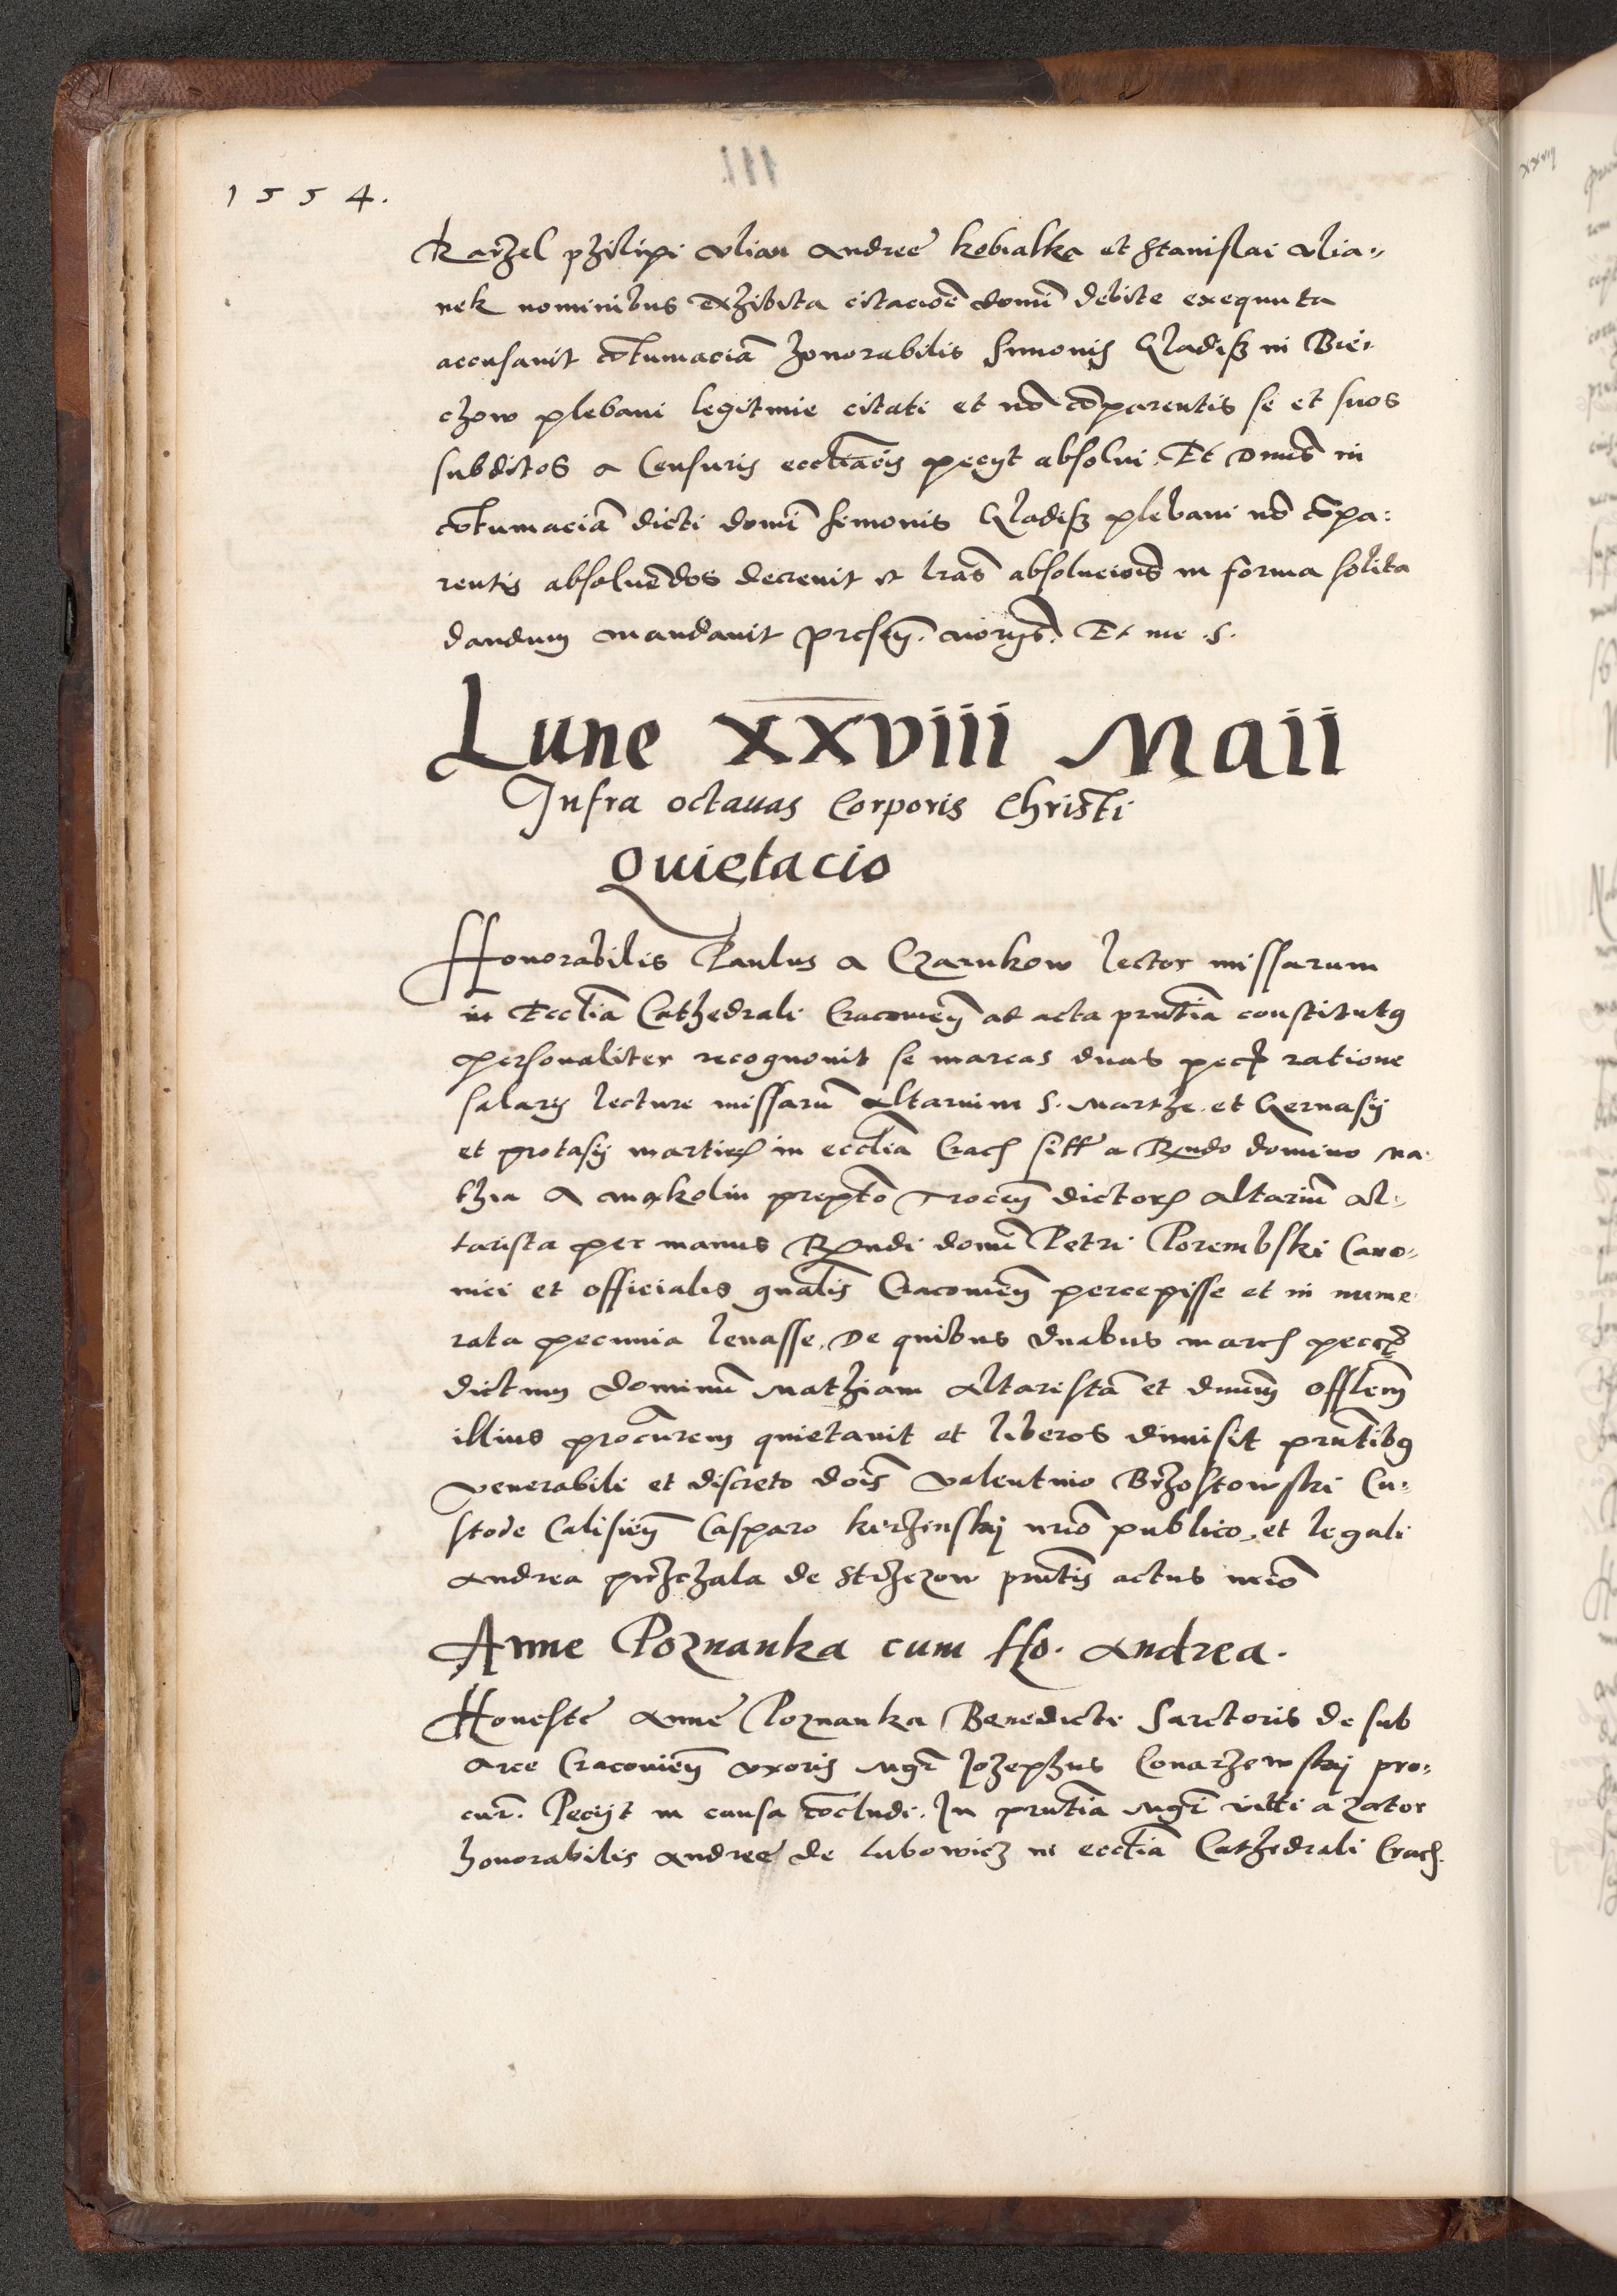 1554.
Karzel philipi Ulian Andree kobialka et Stanislai Ulia-
nek nominibus exhibita citacioē domī debite exequuta
accusavit cōtumaciā honorabilis Simonis Gladisz in Bie-
czow plebani legitime citati et nō cōparentis se et suos
subditos a Censuris eccliācis pecyt absolvi. Et Dnus in
cōtumaciā dicti domī Simonis Gladisz plebani nō cōpa:
rentis absoluēdos decrevit et lras absolucionis in forma solita
dandum mandavit Et me .S.
Lune xxviii Maii
Infra octauas Corporis Christi
Quietacio
Honorabilis Paulus a Czarnkow lector missarum
in Ecclia Cathedrali Cracovien ad acta pñtia constitutus
personaliter recognovit se marcas duas pecu ratione
salarij lecture missarū Altarium S. Marthe et Gervasij
et protasij martirum in ecclia Crac sitt a Rndo domino Ma-
thia a prepto dictorum altariū Al-
tarista per manus Rndi domī Petri Porembski Cano-
nici et officialis gnalis Cracovien percepisse et in nume
rata pecunia levasse. De quibus duabus marc pecc
dictum dominū Mathiam Altaristā et dnum offlem
illius procurem quietavit et liberos dimisit pñtibus
venerabili et discreto dois Valentino Brzostowski Cu-
stode Calisien Casparo kirzinskij nrio publico et legali
Andrea de Strzezow pñtis actus nrio
Anne Poznanka cum Ho. Andrea.
Honeste Anne Poznanka Benedicti Sarctoris de sub
arce Cracovien uxoris Mgr Jozephus Conarzewskij pro-
cur. Pecijt in causa cōcludi. In pñtia Mgri Viti a Zator
honorabilis Andree de Lubowicz in ecclia Cathedrali Crac.